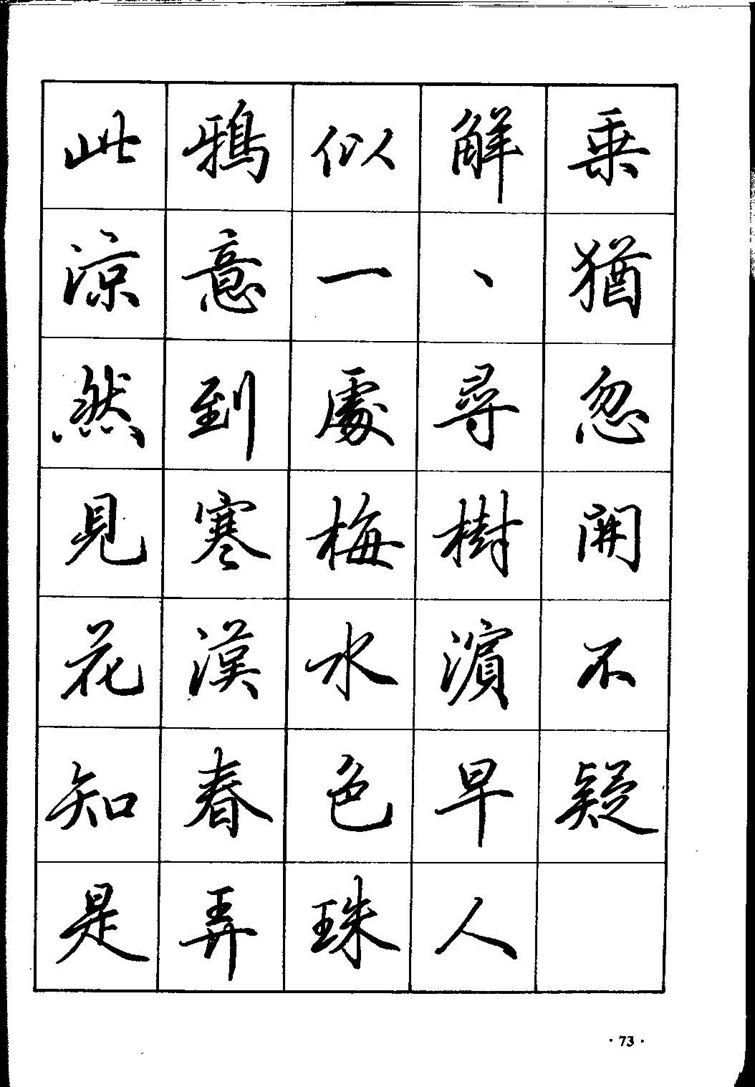 此鴉似解乘
涼意一、猶
然到處尋忽
見寒梅樹開
花漢水濱不
知春色早疑
是弄珠人
·73·